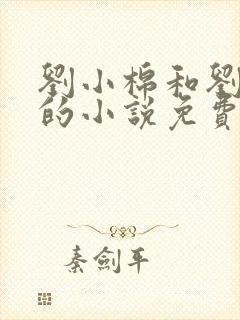 劉小棉和劉
的小說免費
秦劍平